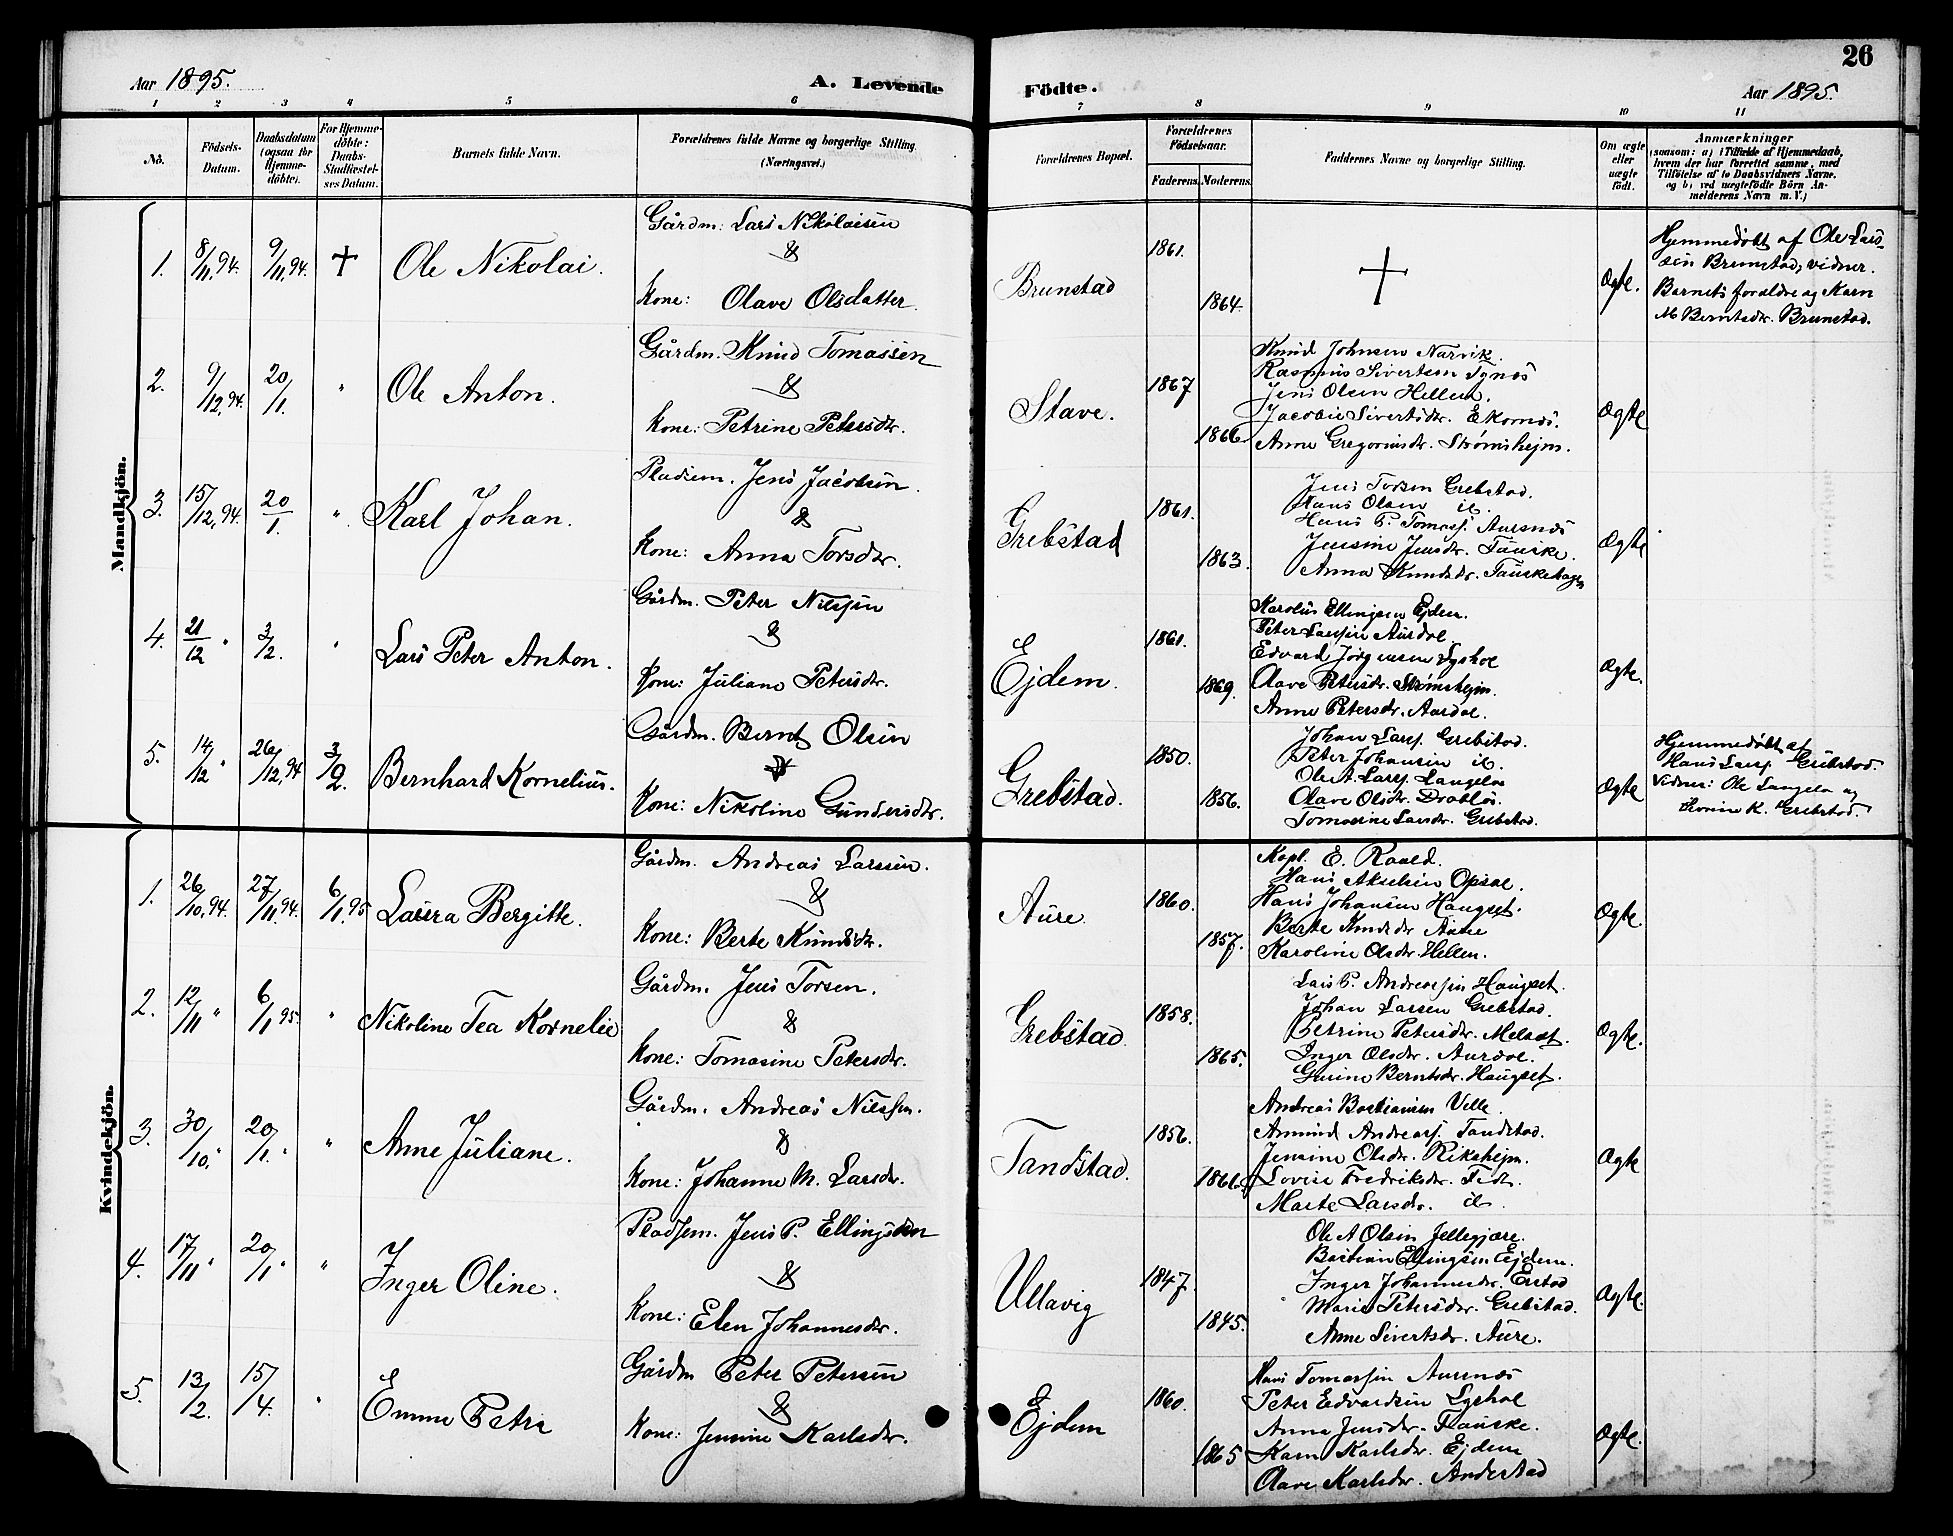 26
Aar 1895.
A. Levende Födte.
Aar 1895.
1 2 3 4 5 6 7 8 9 10 11
No.
Födsels-Datum.
Daabsdatum (ogsaa for Hjemme-döbte).
For Hjemme-döbte: Daabs-Stadfæstel-ses Datum.
Barnets fulde Navn.
Forældrenes fulde Navne og borgerlige Stilling.
(Næringsvei.)
Forældrenes Bopæl.
Forældrenes Födselsaar.
Faderens. Moderens.
Faddernes Navne og borgerlige Stilling.
Om ægte eller uægte født.
Anmærkninger
(saasom: a) i Tilfælde af Hjemmedaab,
hvem der har forrettet samme, med
Tilföielse af to Daabsvidners Navne,
og b) ved uægtefödte Börn An-
melderens Navn m. V.)
Mandkjön.
1. 8/11, 94. 9/11, 94. † Ole Nikolai.
Gårdm: Lars Nikolaisen
&
Kone: Olave Olsdatter.
Brunstad
1861.
1864.
†
Ægte.
Hjemmedøbt af Ole Lars-
sen Brunstad, vidner.
Barnets forældre og Karn
M Berntsdr. Brunstad.
2. 9/12, 94. 20/1. " Ole Anton.
Gårdm. Knud Tomassen
&
Kone: Petrine Petersdtr.
Stave.
1867
1866.
Knud Johnsen Narvik.
Rasmus Sivertsen Tynes
Jens Olsen Hellen.
Jacobie Sivertsdtr. Ekornes.
Anne Gregoriusdr. Strømshejm.
Ægte
3. 15/12, 94. 20/1. " Karl Johan.
Pladsem. Jens Jacobsen.
&
Kone: Anna Torsdtr.
Grebstad
1861.
1863.
Jens Torsen Grebstad.
Hans Olsen il.
Hans P. Tomasj. Aursnes
Jensine Jensdr. Fauske.
Anna Knudsdr. Fauskehagen
Ægte
4. 21/12 " 3/2. " Lars Peter Anton.
Gårdm. Peter Nilssen
&
Kone: Juliane Petersdtr.
Ejdem.
1861.
1869.
Karolus Ellingsen Ejdem.
Peter Larssen Aurdal.
Edvard Jørgensen Lyshol
Olave Petersdr. Strømshejm.
Anne Petersdr. Aurdal.
Ægte.
5. 14/12 " 26/12, 94 3/2. Bernhard Kornelius.
Gårdm. Bernt Olsen
&
Kone: Nikoline Gundersdtr.
Grebstad.
1850.
1856.
Johan Larsj. Grebstad.
Peter Johansen il.
Ole A. Larsj. Langelo
Olave Olsdtr. Drabløs.
Tomasine Larsdr. Grebstad.
Ægte
Hjemmedøbt af
Hans Larsj. Grebstad.
Vidner: Ole Langelo og
K. Grebstad.
Kvindekjön.
1. 26/10, 94. 27/11, 94. 6/1, 95 Laura Bergitte.
Gårdm. Andreas Larssen.
&
Kone: Berte Knudsdtr.
Aure
1860.
1857.
Kapl. E. Raald.
Hans Akselsen Opsal.
Hans Johansen Haugset.
Berte Knudsdr Aure
Karoline Olsdr. Hellen.
Ægte.
2. 12/11 " 6/1, 95. " Nikoline Tea Kornelie
Gårdm. Jens Torsen.
&
Kone: Tomasine Petersdtr.
Grebstad.
1858.
1865.
Lars P. Andreassen Haugset.
Johan Larsen Grebstad.
Petrine Petersdtr. Melset.
Inger Olsdtr. Aurdal.
Gurine Berntsdr. Haugset.
Ægte.
3. 30/10. " 20/1. " " Anne Juliane.
Gårdm. Andreas Nilssen.
&
Kone: Johanne M. Larsdr.
Tandstad.
1856.
1866.
Andreas Bastiansen Velle.
Amund Andreasj. Tandstad.
Jensine Olsdr. Rikshejm.
Lovise Fredriksdr. Fedt.
Marte Larsdr. il.
Ægte
4. 17/11 " 20/1. " " Inger Oline.
Pladsem. Jens P. Ellingsen
&
Kone: Elen Johannesdtr.
Ullavig
1847.
1845.
Ole A Olsen Jellegjære.
Bastian Ellingsen Ejdem.
Inger Johannesdr. Erstad
Marie Petersdtr. Grebstad.
Anne Sivertsdr. Aure.
Ægte.
5. 13/2. 15/4. " Emma Petra
Gårdm Peter Petersen
&
Kone: Jensine Karlsdtr.
Ejdem
1860.
1865
Hans Tomassen Aursnes
Peter Edvardsen Lyshol
Anna Jensdr. Fauske.
Karn Karlsdr. Ejdem
Olave Karlsdr. Anderstad
Ægte.